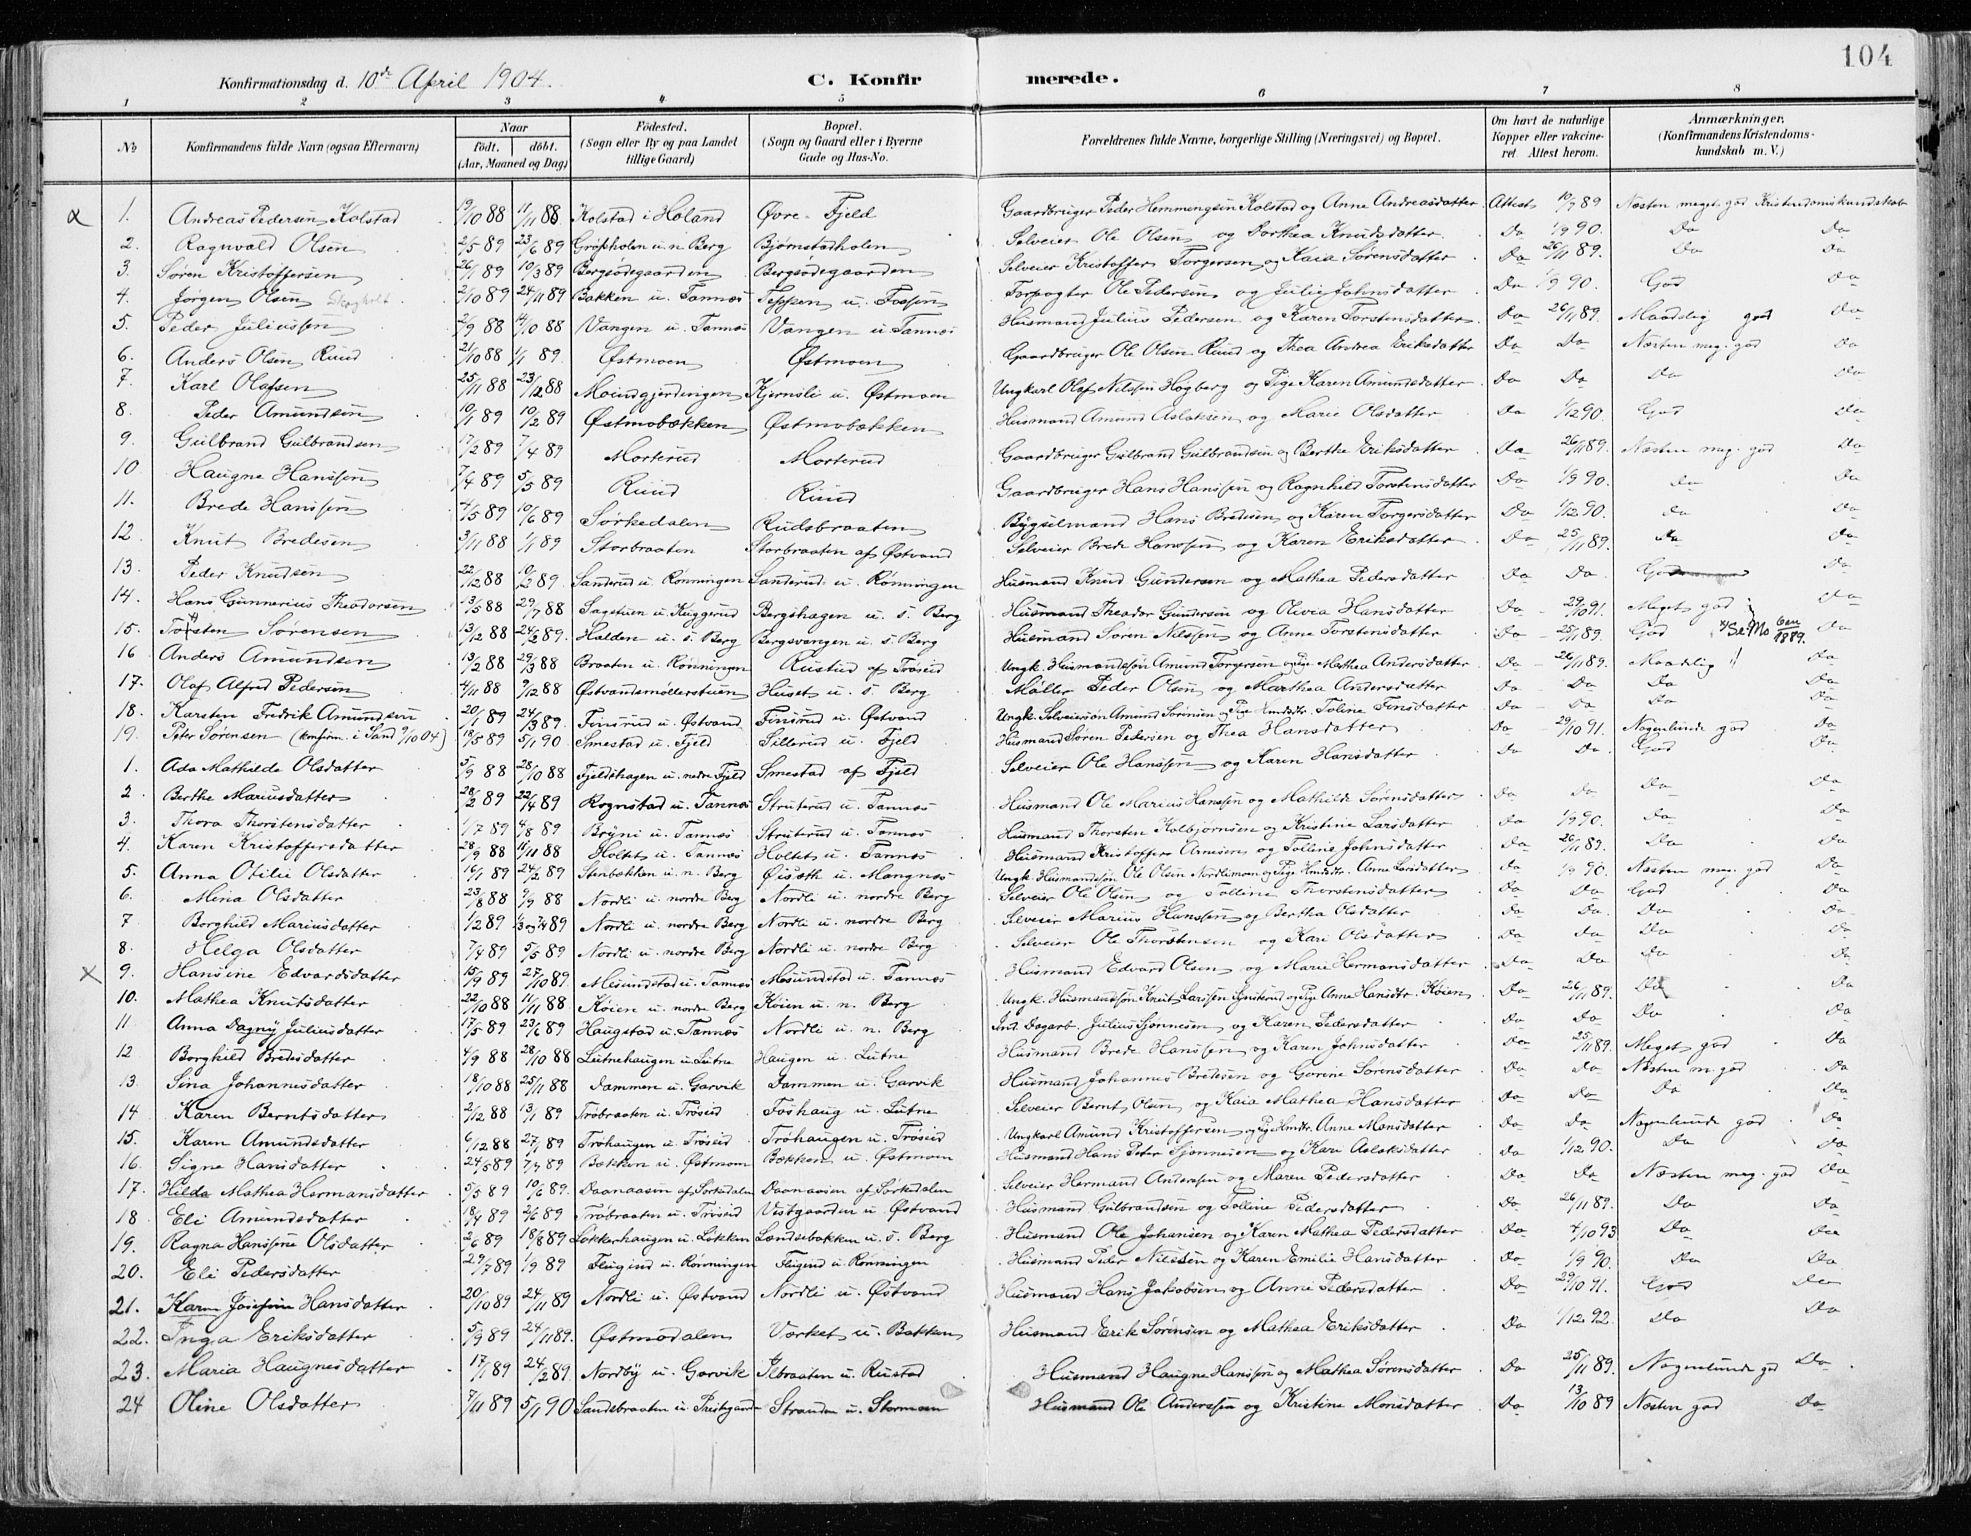 104
Konfirmationsdag d. 10de April 1904. C. Konfirmerede.
1 2 3 4 5 6 7 8
No Konfirmandens fulde Navn (ogsaa Efternavn) Naar født. døbt. (Aar, Maaned og Dag) Fødested. (Sogn eller By og paa Landet tillige Gaard) Bopæl. (Sogn og Gaard eller i Byerne Gade og Hus-No. Forældrenes fulde Navne, borgerlige Stilling (Næringsvei) og Bopæl. Om havt de naturlige Kopper eller vakcineret. Attest herom. Anmærkninger. (Konfirmandens Kristendomskundskab m. V.)
1. Andreas Pedersen Kolstad 19/10 88 11/11 88 Kolstad i Høland Øvre Fjeld Gaardbruger Peder Hemmingsen Kolstad og Anne Andreasdatter Attest 10/9 89 Næsten meget god Kristendomskundskab
2. Ragnvald Olsen 2/5 89 23/6 89 Grøfholen u. n. Berg Bjørnstadholen Selveier Ole Olsen og Dorthea Knudsdatter Do 1/9 90. Do Do
3. Søren Kristoffersen 26/1 89 10/3 89 Bergsødegaarden Bergsødegaarden Selveier Kristoffer Torgersen og Kaia Sørensdatter Do 26/11 89. Do Do
4. Jørgen Olsen 2/10 89 24/11 89 Bakken u. Tannæs Teppen u. Fossen Forpagter Ole Pedersen og Julie Johnsdatter Do 1/9 90. God Do
5. Peder Juliussen 2/9 88 14/10 88 Vangen u. Tannæs Vangen u Tannæs Husmand Julius Pedersen og Karen Torstensdatter Do 26/11 89. Maadelig god Do
6. Anders Olsen Ruud 21/10 88 1/1 89. Østmoen Østmoen Gaardbruger Ole Olsen Ruud og Thea Andrea Eriksdatter Do Do Næsten meg. god
7. Karl Olafsen 25/11 88 23/12 88 Moundgjerdingen Kjernsli u. Østmoen Ungkarl Olaf Nilssen Høgberg og Pige Karen Amundsdatter Do Do Do Do
8. Peder Amundsen 10/1 89 10/2 89 Østmobækken Østmobækken Husmand Amund Aslaksen og Marie Olsdatter Do 1/12 90. God Do
9. Gulbrand Gulbrandsen 17/2 89 7/4 89 Morterud Morterud Gaardbruger Gulbrand Gulbrandsen og Berthe Eriksdatter Do 26/11 89. Næsten meg. god Do
10. Haugne Hanssen 7/4 89 5/5 89 Ruud Ruud Gaardbruger Hans Hanssen og Ragnhild Torstensdatter Do 1/9 90. Do Do
11. Brede Hanssen 4/5 89 10/6 89 Sørkedalen Rudsbraaten Bygselmand Hans Bredesen og Karen Torgersdatter Do 1/12 90. Do Do
12 Knut Bredesen 3/11 88 1/1 89 Storbraaten Storbraaten af Østvand Selveier Brede Hanssen og Karen Eriksdatter Do 25/11 89. Do Do
13. Peder Knudsen 22/12 88 10/2 89. Sanderud u. Rønningen Sanderud u. Rønningen Husmand Knud Gundersen og Mathea Pedersdatter Do Do. God Do
14. Hans Gunnerius Theodorsen 13/5 88 29/7 88 Sagstuen u. Kuggerud Bergshagen u. s. Berg Husmand Theodor Gundersen og Olivia Hansdatter Do 29/10 91. Meget god Do
15. Torsten Sørensen 13/12 88 24/2 89. Halden u. s. Berg Bergsvangen u. s. Berg Husmand Søren Nilssen og Anne Torstensdatter Do 25/11 89. God Do
16 Anders Amundsen 13/2 88 29/3 88 Braaten u. Rønningen Rustud af Trøseid Ungk. Husmandssøn Amund Torgersen og Pige Mathea Andersdatter Do 26/11 89. Maadelig Do
17. Olaf Alfred Pedersen 4/11 88 9/12 88 Østvandsmøllerstuen Huset u. s. Berg Møller Peder Olsen og Marthea Andersdatter Do Do Do Do
18. Karsten Fredrik Amundsen 20/1 89 24/3 89. Finsrud u. Østvand Finsrud u. Østvand Ungk. Selveiersøn Amund Sørensen og Pige Toline Finsdatter Do Do. Do Do
19. Peter Sørensen (konfirm. i Sand 9/10 04) 18/5 89 5/1 90 Smestad u. Fjeld Sillerud u. Fjeld Husmand Søren Pedersen og Thea Hansdatter Do 29/10 91. Nogenlunde god Do
1. Ada Mathilde Olsdatter 5/9 88 28/10 88 Fjeldshagen u. nedre Fjeld Smestad af Fjeld Selveier Ole Hanssen og Karen Hansdatter Do Do. God Do
2. Berthe Mariusdatter 28/2 89 22/4 89 Rognstad u. Tannæs Struterud u. Tannæs Husmand Ole Marius Hanssen og Mathilde Sørensdatter Do Do Do Do
3. Thora Thorstensdatter 1/7 89 4/8 89 Bryni u. Tannæs Struterud u. Tannæs Husmand Thorsten Kolbjørnsen og Kristine Larsdatter Do 1/9 90. Do Do
4. Karen Kristoffersdatter 28/9 88 11/11 88 Holtet u. Tannæs Holtet u. Tannæs Husmand Kristoffer Arnesen og Tolline Johnsdatter Do 26/11 89. Do Do
5. Anna Otilie Olsdatter 16/1 89 24/2 89 Stenbakken u. n. Berg Øisæth u. Mangnæs Ungk. Husmandssøn Ole Olsen Nordlimoen og Pige Anne Larsdatter Do 1/9 90. Næsten meg. god Do
6. Mina Olsdatter 23/8 88 9/9 88 Nordli u. nordre Berg Nordli u. nordre Berg Selveier Ole Olsen og Tolline Thorstensdatter Do Do God Do
7 Borghild Mariusdatter 1/2 89 Nordli u. nordre Berg Nordli u. nordre Berg Selveier Marius Hanssen og Bertha Olsdatter Do Do. Do Do
8. Helga Olsdatter 7/4 89 5/5 89 Nordli u. nordre Berg Nordli u. nordre Berg Selveier Ole Thorstensen og Kari Olsdatter Do Do Do Do
9. Hansine Edvardsdatter 15/9 89 27/10 89. Mesundstad u. Tannæs Mesundstad u. Tannæs Husmand Edvard Olsen og Marie Hermansdatter Do Do Do Do
10. Mathea Knutsdatter 22/10 88 11/11 88 Køien u. nordre Berg Køien u. n. Berg Ungk. Husmandssøn Knut Larssen og Pige Anne Hansdtr. Køien Do 26/11 89. Do Do
11 Anna Dagny Juliusdatter 17/5 89 23/6 89 Haugstad u. Tannæs Nordli u. n. Berg Ind. Dagarb. Julius Sjønnesen og Karen Pedersdatter Do Do Do Do
12 Borghild Bredesdatter 4/9 88 28/10 88 Lutnehaugen u. Lutne Haugen u. Lutne Husmand Brede Hanssen og Karen Johnsdatter Do 25/11 89. Meget god Do
13. Sina Johannesdatter 18/10 88 25/11 88 Dammen u. Garvik Dammen u. Garvik Husmand Johannes Bredesen og Gorine Sørensdatter Do Do Næsten m. god Do
14 Karen Berntsdatter 2/12 88 13/1 89 Trøbraaten u. Trøseid Foshaug u. Lutne Selveier Bernt Olsen og Kaia Mathea Hansdatter Do Do Do Do
15. Karen Amundsdatter 6/12 88 27/1 89 Trøhaugen u. Trøseid Trøhaugen u. Trøseid Ungkarl Amund Kristoffersen og Pige Anne Mansdatter Do Do Nogenlunde god Do
16. Signe Hansdatter 24/5 89 7/7 89 Bækken u. Østmoen Bækken u. Østmoen Husmand Hans Peter Sjønnesen og Kari Aslaksdatter Do 1/12 90. Do Do
17. Hilda Mathea Hermansdatter 5/5 89 10/6 89. Daanaasen af Sørkedalen Daanaasen af Sørkedalen Selveier Hermand Anderssen og Maren Pedersdatter Do Do Næsten meg. god Do
18 Eli Amundsdatter 18/4 89 2/6 89 Trøbraaten u. Trøseid Vestgaarden u. Østvand Husmand Gulbrandsen og Tolline Pedersdatter Do 26/11 89. Do Do
19. Ragna Hansine Olsdatter 2/6 89 18/8 89 Løkkerhaugen u. Løkken Lændsebakken u. s. Berg Husmand Ole Johansen og Karen Mathea Pedersdatter Do 4/10 93 Do Do
20. Eli Pedersdatter 29/7 89 1/9 89 Flugind u. Rønningen Flugind u. Rønningen Husmand Peder Nilssen og Karen Emilie Hansdatter Do 1/9 90. Do Do
21. Karen Josefine Hansdatter 20/10 89 24/11 89 Nordli u. Østvand Nordli u. Østvand Husmand Hans Jakobsen og Anne Pedersdatter Do 29/10 91. God Do
22. Inga Eriksdatter 5/9 89 24/11 89. Østmodalen Værket u. Bakken Husmand Erik Sørensen og Mathea Eriksdatter Do 1/12 92. Do Do
23. Maria Haugnesdatter 17/1 89 24/2 89. Nordby u. Garvik Ilbraaten u. Rustad Husmand Haugne Hanssen og Mathea Sørensdatter Do 25/11 89. Nogenlunde gd Do
24 Oline Olsdatter 7/11 89 5/1 90 Sandsbraaten u. Prestegaarden Stranden u. Stormoen Husmand Ole Anderssen og Kristine Monsdatter Do 13/10 89 Næsten god Do